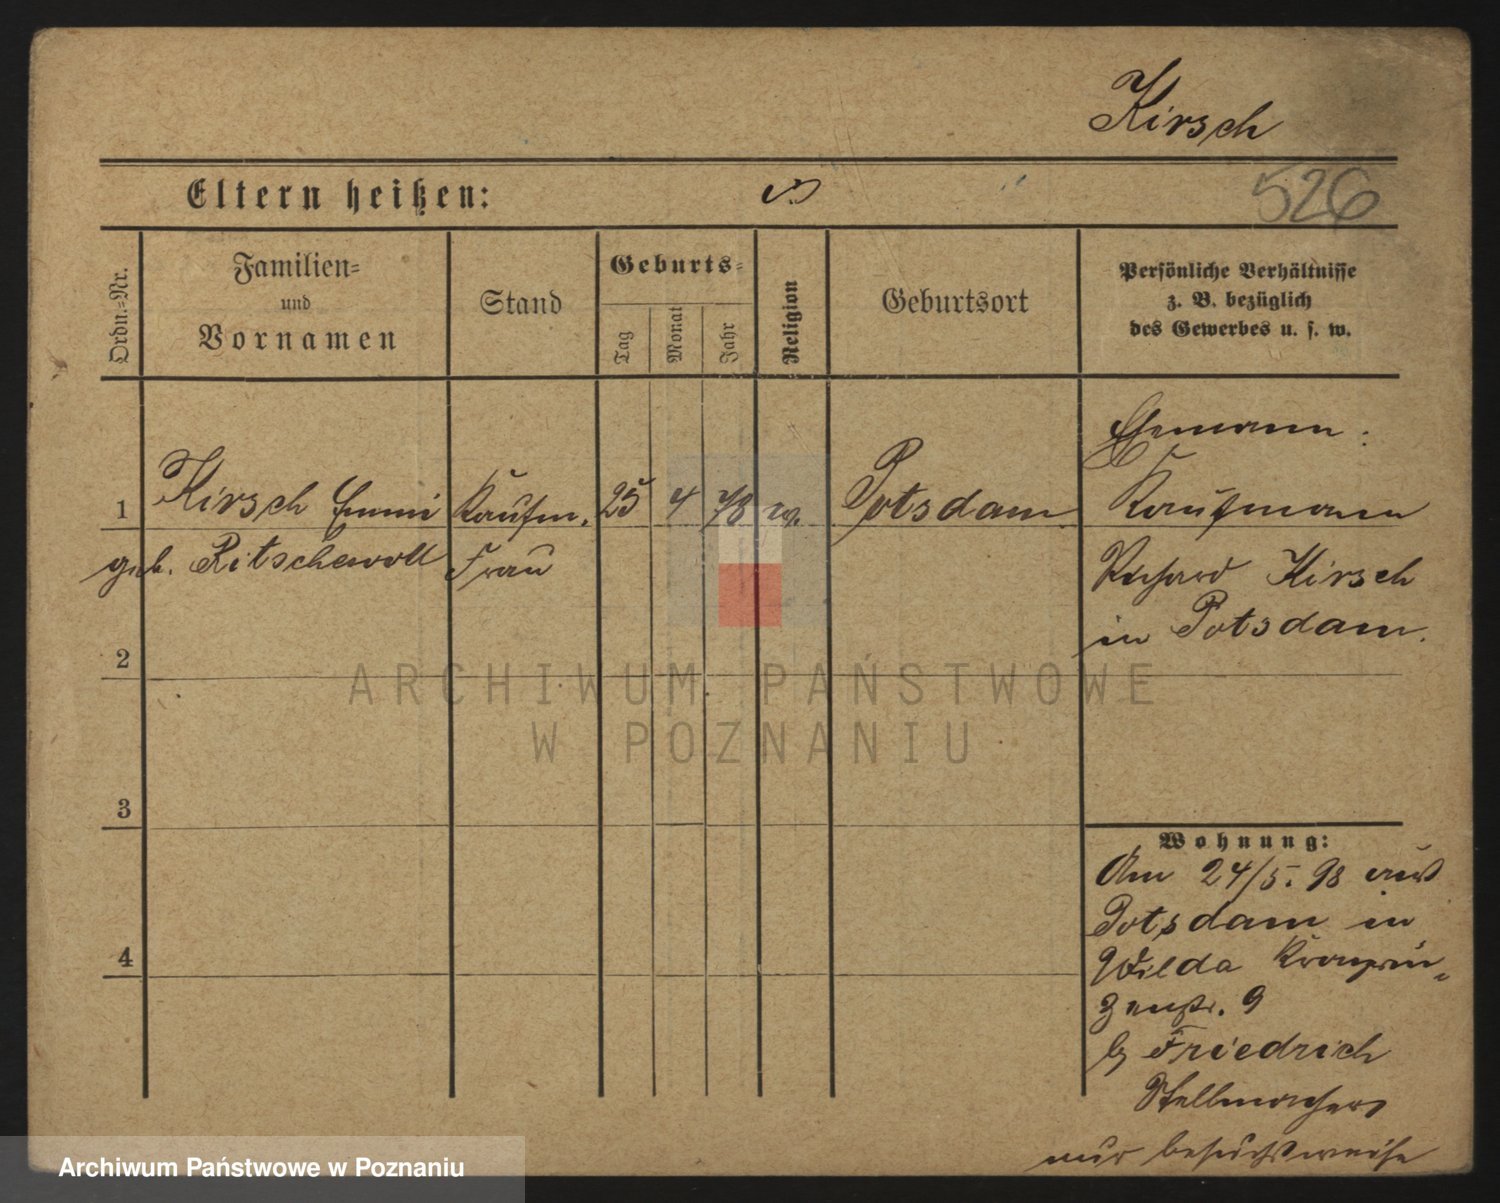 Kirsch
526
Eltern heißen:
Ordn.-Nr.
Familien-
und
Vornamen
Stand
Geburts-
Tag
Monat
Jahr
Religion
Geburtsort
Persönliche Verhältnisse
z. B. bezüglich
des Gewerbes u. s. w.
1
Kirsch Emmi
Kaufm.
25
4
73
ev.
Potsdam
Ehemann:
Kaufmann
geb. Ritschewoll
Frau
Richard Kirsch
in Potsdam.
2
3
4
Wohnung:
Am 24/5. 98 aus
Potsdam in
Wilda Kronprin-
zenstr. 9
b/ Friedrich
Stellmacher
nur besuchsweise
ARCHIWUM PAŃSTWOWE
W POZNANIU
Archiwum Państwowe w Poznaniu